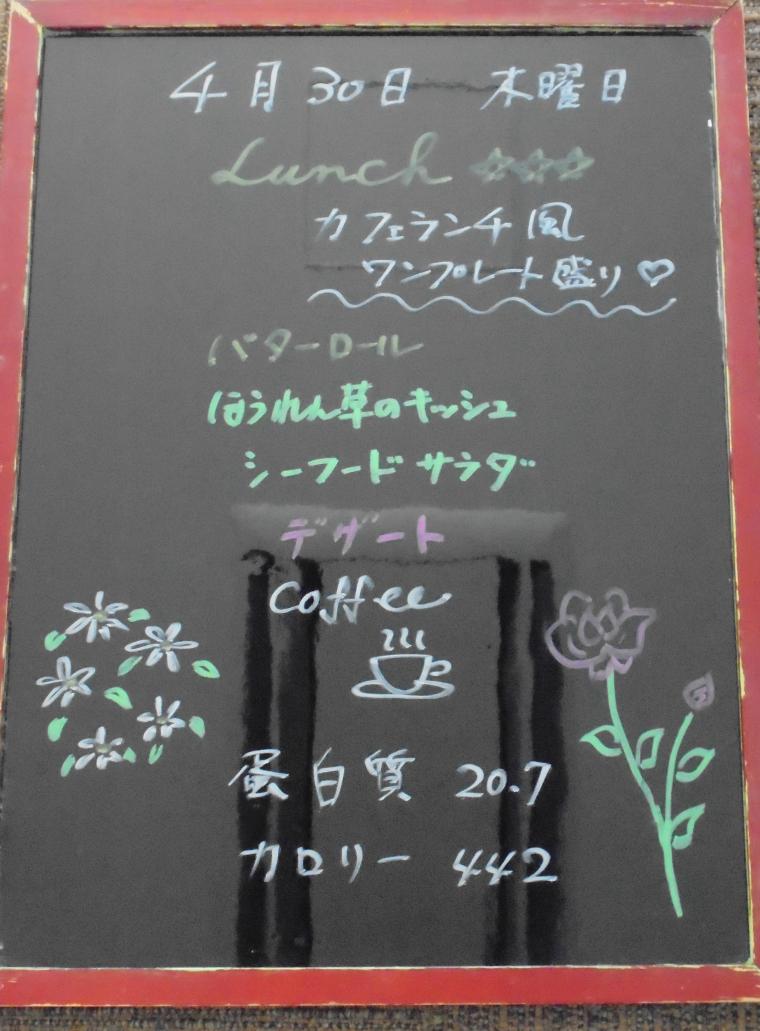 4月30日 木曜日
Lunch ☆☆☆
カフェランチ風
ワンプレート盛り♡
バターロール
ほうれん草のキッシュ
シーフードサラダ
デザート
coffee
蛋白質 20.7
カロリー 442